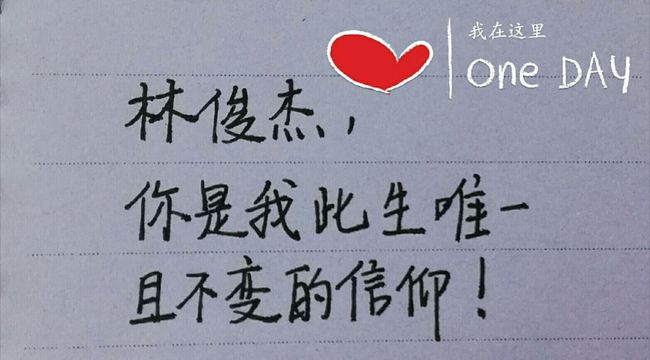 我在这里
One DAY
林俊杰，
你是我此生唯一
且不变的信仰！